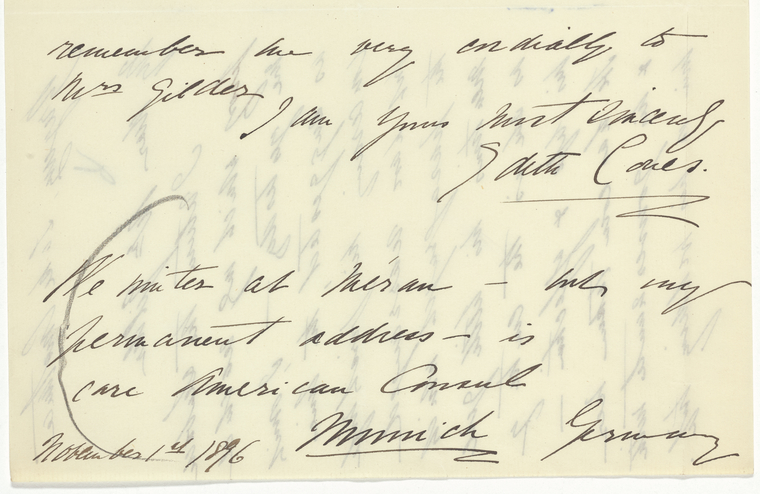 remember me very cordially to
Mrs Gilder
I am yours most sincerely
Edith Coues.
We winter at Méran – but my
permanent address – is
care American Consul
Munich Germany
November 1st 1896